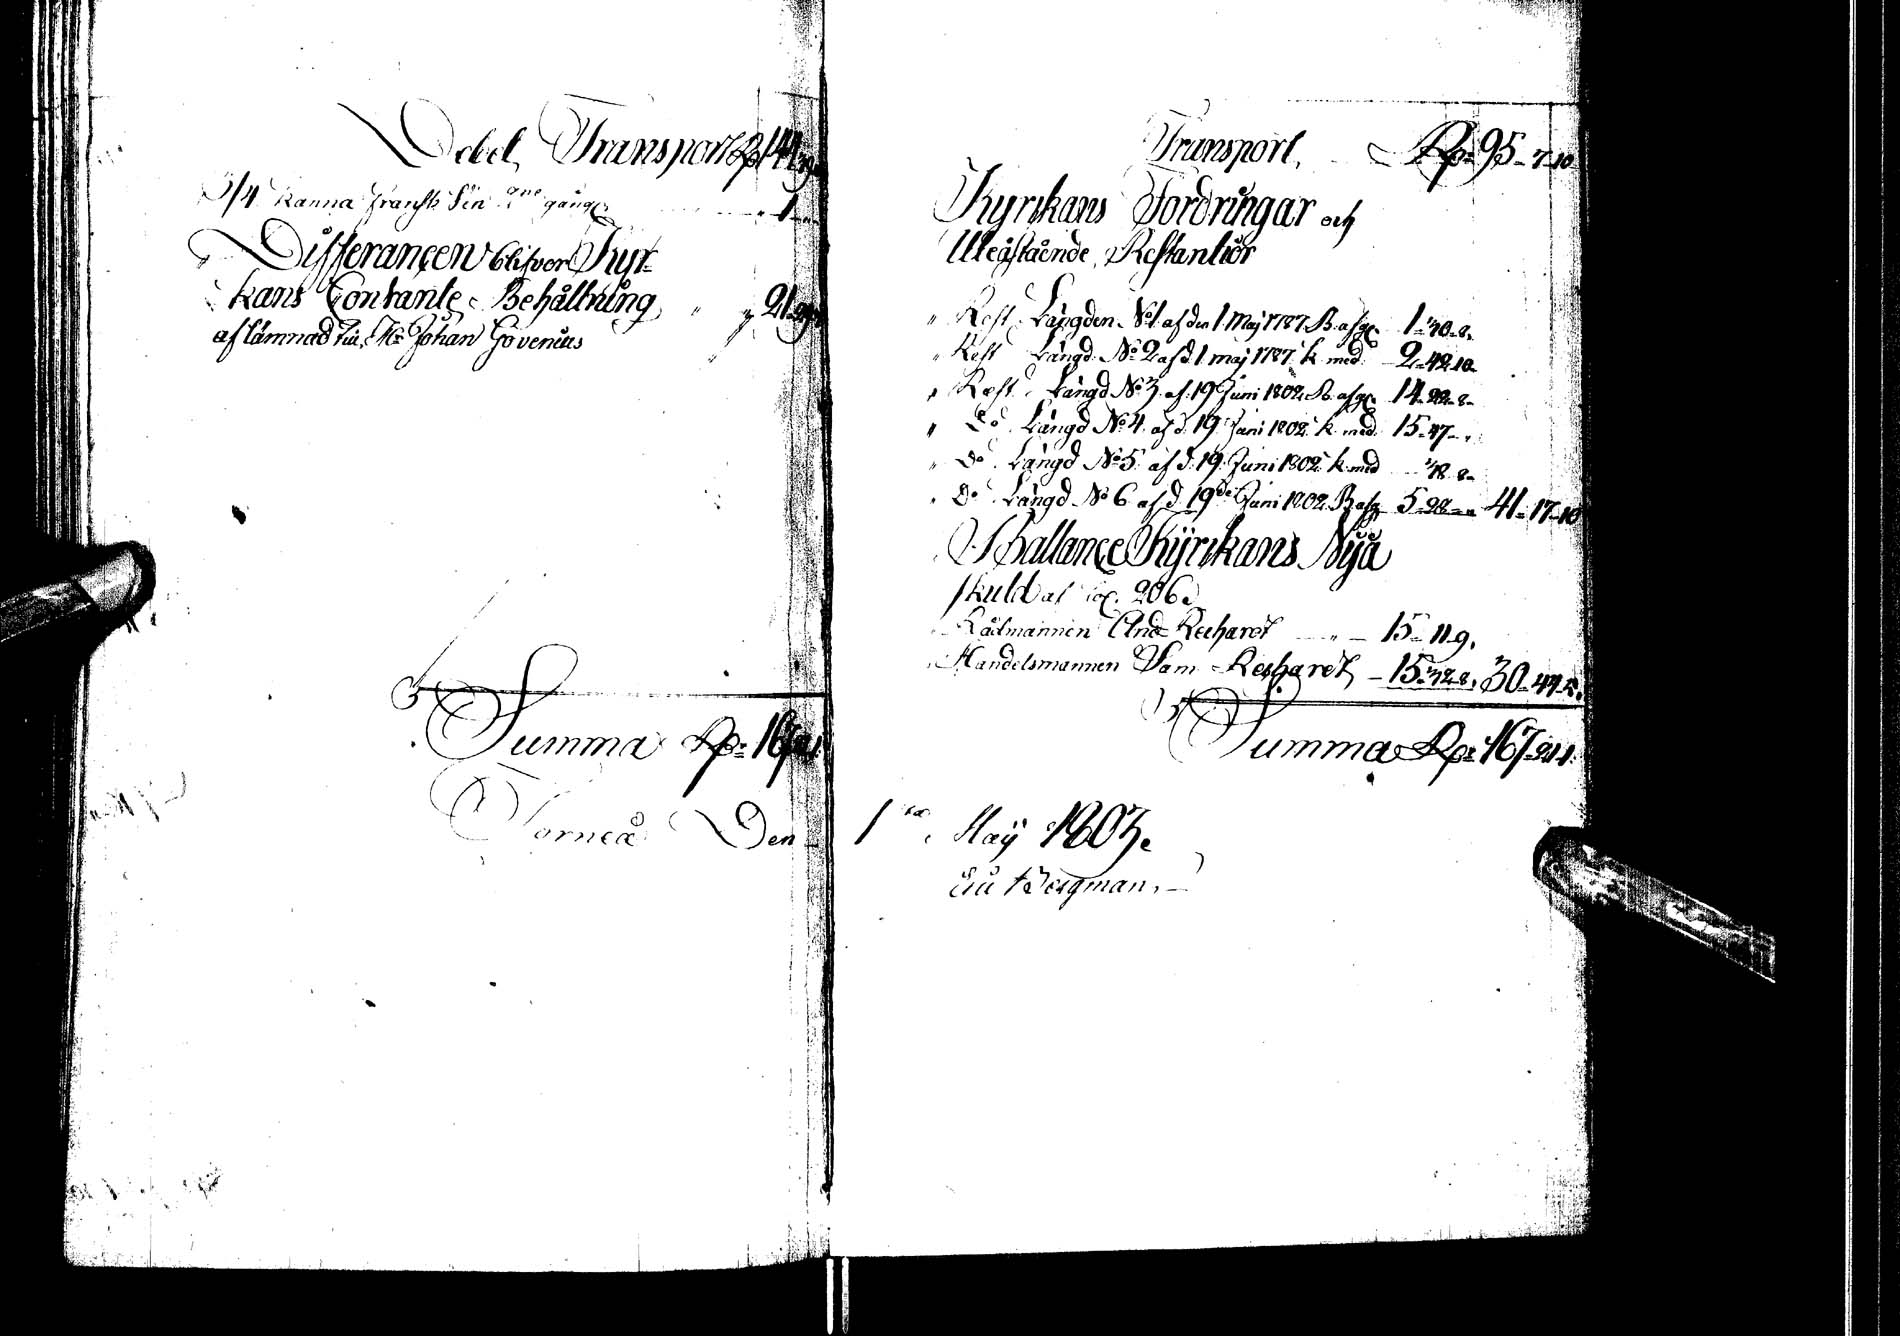 Debet, Transport Rd 144.39
3/4 Kanna Fransk Vin gånge 1
Differancen blifver Kyr=
kans Contante Behållning 21
aflämnad till Mr Johan Govenius
Summa Rd: 167
Torneå Den
Transport, Rd: 95-7-10
Kyrikans Fordringar och
Uteåstående, Restantier
Rest Längden No 1 af den 1 Maj 1787. B. afg. 1-40-8.
Rest Längd No 2 af d. 1 maj 1787 k. med 2-42-10
Rest Längd No 3. af. 19 Juni 1802. B. afg. 14-22-8-
Do Längd No 4. af d. 19 Juni 1802. k. med. 15-47-
Do Längd No 5. af d. 19. Juni 1802 k. med 48-8-
Do Längd No 6. af d. 19de Juni 1802. B afg 5-28 41-17-10
Ballance Kyrikans Nya
skuld af 206.
Rådmannen And Reshardt 15-11-9.
Handelsmannen Sam Reshardt 15-32-8. 30-44-5.
Summa Rd: 167-21-1.
1 Maÿ 1803.
Bergman.